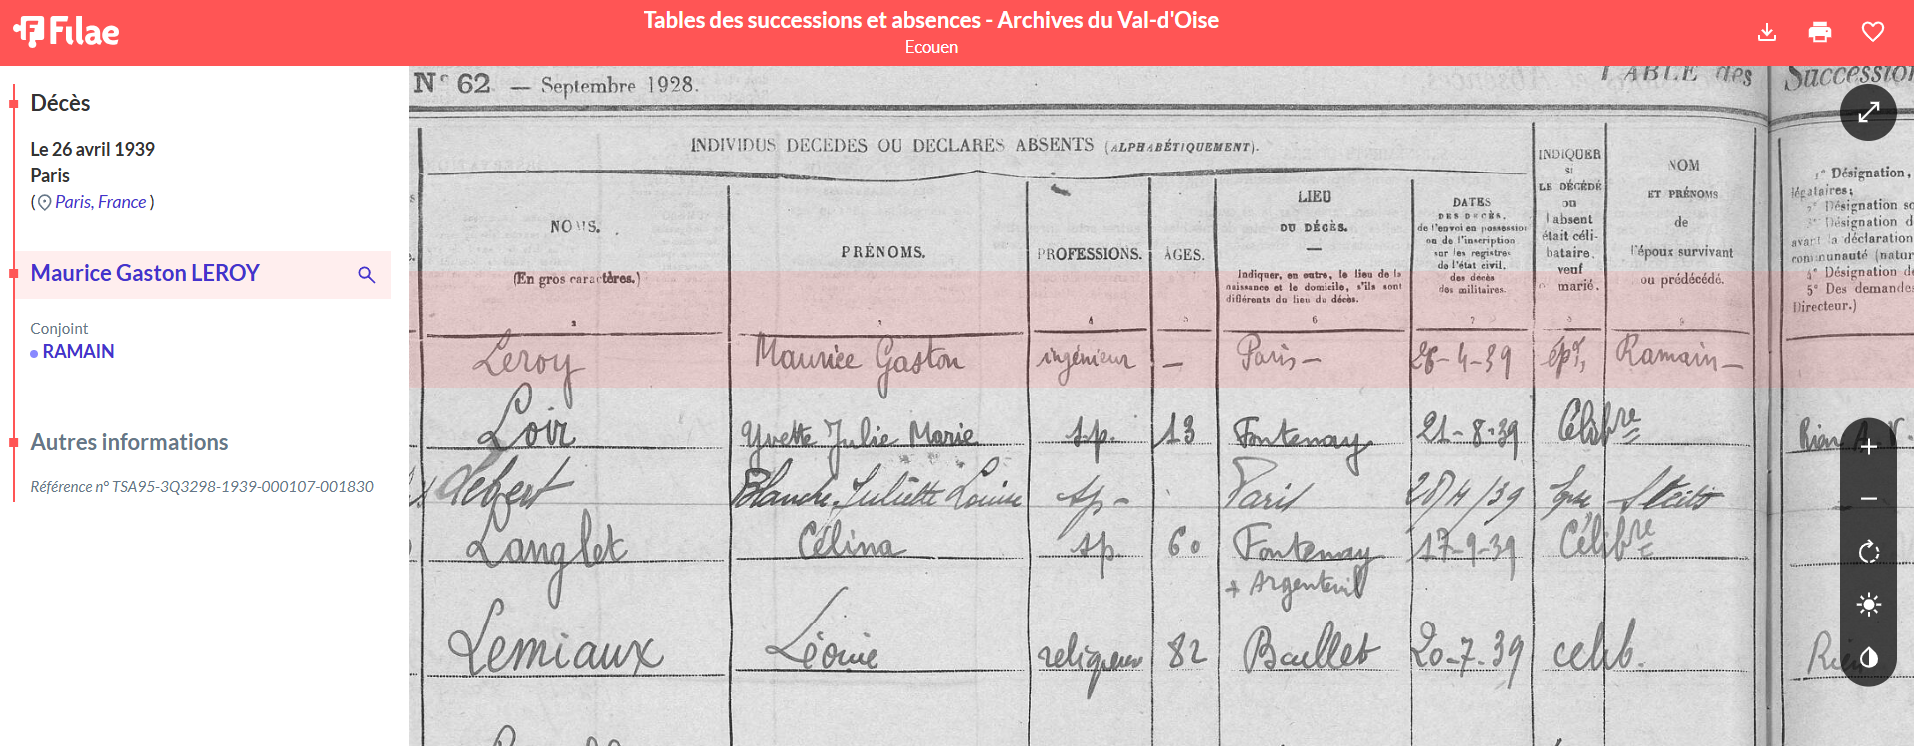 Filae
Tables des successions et absences - Archives du Val-d'Oise
Ecouen
Décès
Le 26 avril 1939
Paris
( Paris, France )
Maurice Gaston LEROY
Conjoint
RAMAIN
Autres informations
Référence n° TSA95-3Q3298-1939-000107-001830
N° 62 — Septembre 1928.
TABLE des Succession
INDIVIDUS DÉCÉDÉS OU DÉCLARÉS ABSENTS (ALPHABÉTIQUEMENT).
NOMS.
(En gros caractères.)
2
PRÉNOMS.
PROFESSIONS.
4
ÂGES.
5
LIEU
DU DÉCÈS.
—
Indiquer, en outre, le lieu de la
naissance et le domicile, s'ils sont
différents du lieu du décès.
6
DATES
DES DÉCÈS,
de l'envoi en possession
ou de l'inscription
sur les registres
de l'état civil,
des décès
des militaires.
7
INDIQUER
si
LE DÉCÉDÉ
ou
l'absent
était céli-
bataire,
veuf
marié.
NOM
ET PRÉNOMS
de
l'époux survivant
ou prédécédé.
1° Désignation,
légataires;
2° Désignation
3° Désignation
avant la déclaration
communauté
4° Désignation
5° Des demandes
Directeur.)
Leroy Maurice Gaston ingénieur — Paris — 26-4-39 ép Ramain —
Loir Yvette Julie Marie s.p. 13 Fontenay 21-8-39 Célibre Rien
Blanche Juliette Louise sp - Paris 28/4/39
Langlet Célina s.p. 60 Fontenay 17-9-39 Célibre
+ Argenteuil
Lemiaux Léonie religieuse 82 Baillet 20-7-39 celib.